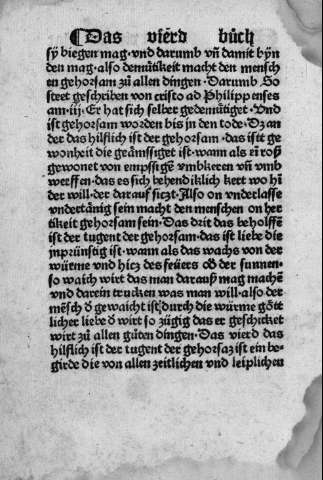 ¶Das vierd bůch
sÿ biegen mag·vnd darumb vn̄ damit bÿn
den mag·also demůtikeit macht den mensch
en gehorsam zů allen dingen·Darumb So
steet geschriben von cristo ad Philippenses
am·iij·Er hat sich selber gedemůtiget·Vnd
ist gehorsam worden bis in den tode·Dz an
der das hilflich ist der gehorsam·das istt ge
wonheit die geämssiget ist·wann als ei roß
gewonet von empssigē vmbkeren vn̄ vmb
werffen·das es sich behendiklich kert wo hī
der will·der darauf siczt·Also on vnderlasse
vndertānig sein macht den menschen on her
tikeit gehorsam sein·Das drit das beholffē
ist der tugent der gehorsam·das ist liebe die
inprünstig ist·wann als das wachs von der
würme vnd hicz des feüers oď der sunnen·
so waich wirt das man darauß mag machē
vnd darein trucken was man will·also der
mēsch ď gewaicht ist durch die würme gött
licher liebe ď wirt so zügig das er geschicket
wirt zů allen gůten dingen·Das vierd das
hilflich ist der tugent der gehorsaz ist ein be-
girde die von allen zeitlichen vnd leiplichen